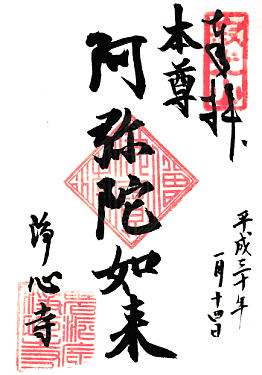 奉拝
本尊
阿弥陀如来
平成三十年
一月十四日
浄心寺